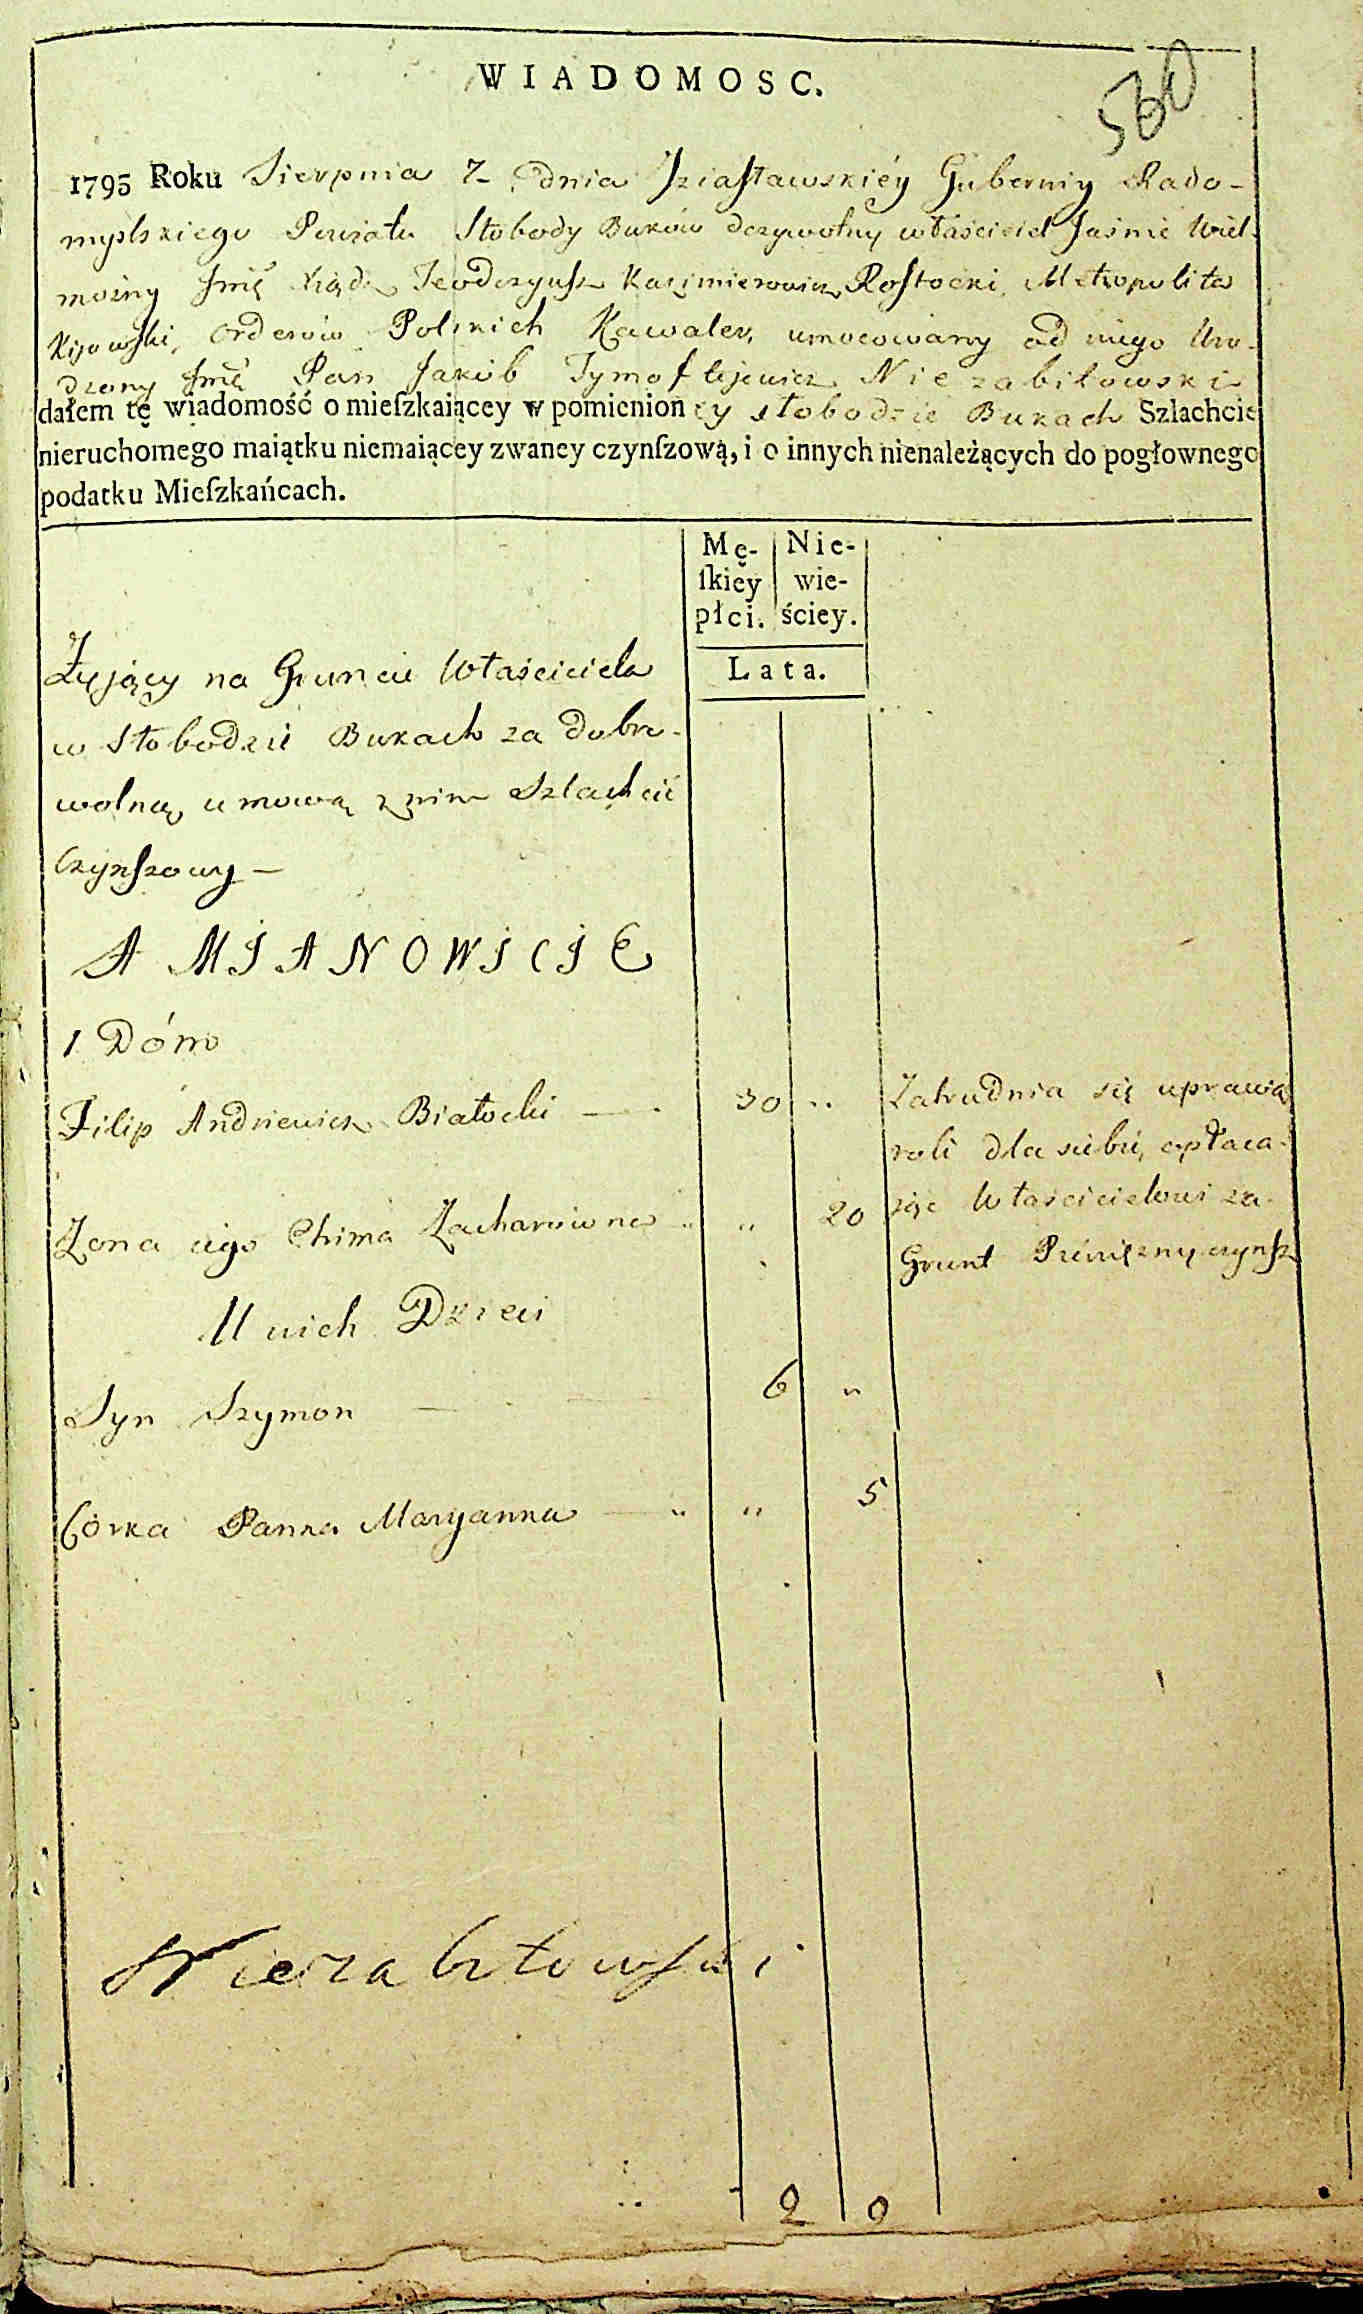 WIADOMOSC.
560
1795 Roku Sierpnia 7 dnia Jziasławskiéy Guberniy Rado-
myslskiego Powiatu Słobody Buków dozywotny właściciel Jaśnie Wiel-
możny Jmię Xiądz Teodozyusz Kazimierowicz Rostocki Metropolita
Kijowski, Orderów Polskich Kawaler, umocowany od niego Uro-
dzony Jmię Pan Jakób Tymofiejewicz Niezabitowski
dałem tę wiadomość o mieſzkaiącey w pomienioney słobodzie Bukach Szlachcie
nieruchomego maiątku niemaiącey zwaney czynſzową, i o innych nienależących do pogłownego
podatku Mieſzkańcach.
Mę- Nie-
ſkiey wie-
płci. ściey.
Lata.
Żyjący na Gruncie Właściciela
w Słobodzie Bukach za dobro-
wolną umową z nim Szlachcic
Czynszowy —
A MJANOWJCJE
1 Dóm
Filip Andrieuicz Białocki — 30 ..
Zatrudnia się uprawią
roli dla siebie, opłaca-
Żona iego Chima Zacharowna .. 20
jąc Włascicielowi za
Grunt Pieniężny czynsz
U nich Dzieci
Syn Szymon — 6 ..
Córka Panna Maryanna — .. 5
Niezabitowski
2 9